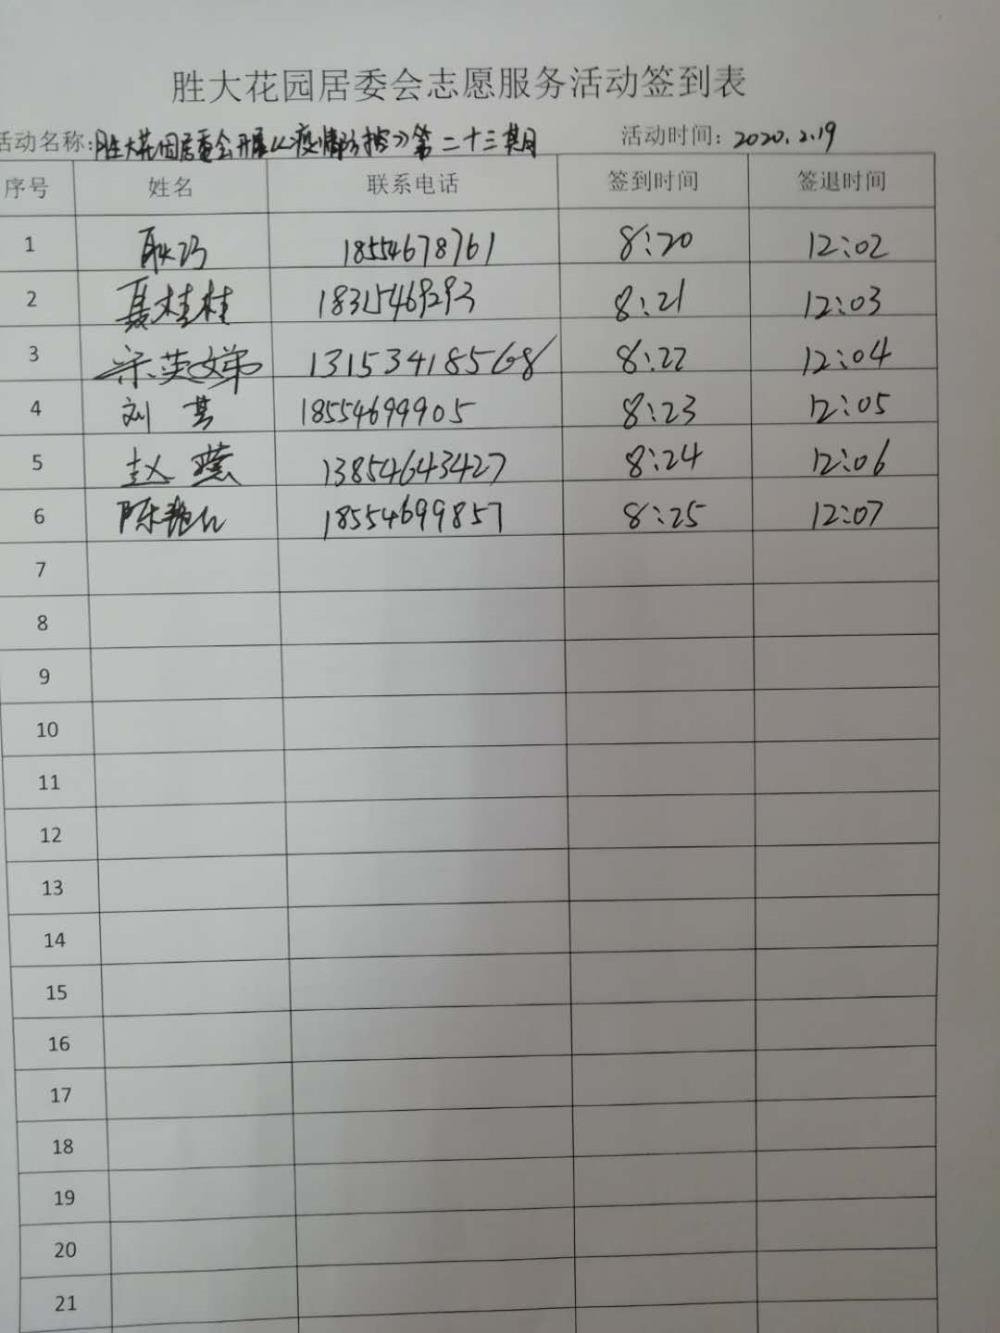 胜大花园居委会志愿服务活动签到表
活动名称:胜大花园居委会开展《疫情防控》第二十三期 活动时间: 2020.2.19
序号 姓名 联系电话 签到时间 签退时间
1 耿巧 18554678761 8:20 12:02
2 聂桂桂 18315469293 8:21 12:03
3 宋英娣 13153418568 8:22 12:04
4 刘 18554699905 8:23 12:05
5 赵 13854643427 8:24 12:06
6 陈艳红 18554699857 8:25 12:07
7
8
9
10
11
12
13
14
15
16
17
18
19
20
21